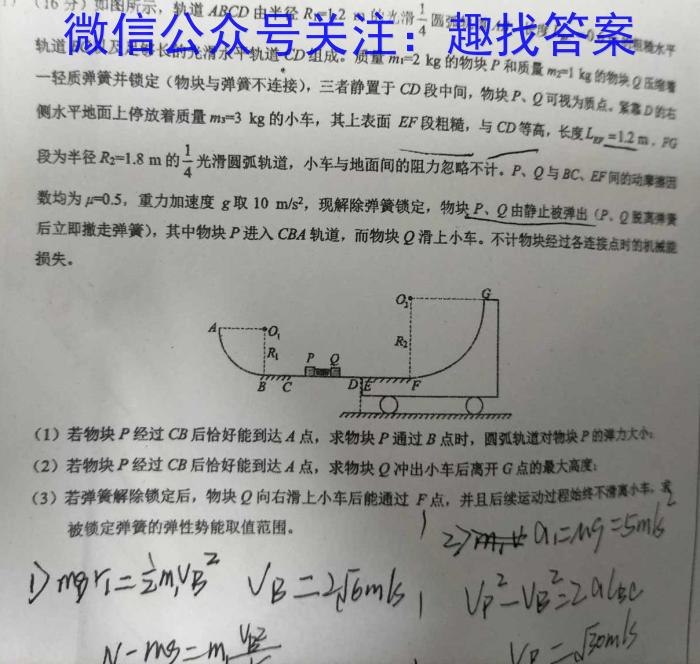 (16分) 如图所示，轨道 ABCD 由半径 R₁=1.2 m 的光滑 1/4 圆弧 粗糙水平
微信公众号关注：趣找答案
轨道 光滑水平轨道 CD 组成。质量 m₁=2 kg 的物块 P 和质量 m₂=1 kg 的物块 Q 压缩着
一轻质弹簧并锁定（物块与弹簧不连接），三者静置于 CD 段中间，物块 P、Q 可视为质点。紧靠 D 的右
侧水平地面上停放着质量 m₃=3 kg 的小车，其上表面 EF 段粗糙，与 CD 等高，长度 L_EF=1.2 m，FG
段为半径 R₂=1.8 m 的 1/4 光滑圆弧轨道，小车与地面间的阻力忽略不计。P、Q 与 BC、EF 间的动摩擦因
数均为 μ=0.5，重力加速度 g 取 10 m/s²，现解除弹簧锁定，物块 P、Q 由静止被弹出（P、Q 脱离弹簧
后立即撤走弹簧），其中物块 P 进入 CBA 轨道，而物块 Q 滑上小车。不计物块经过各连接点时的机械能
损失。
A O₁ R₁ B C P Q D E F O₂ R₂ G
(1) 若物块 P 经过 CB 后恰好能到达 A 点，求物块 P 通过 B 点时，圆弧轨道对物块 P 的弹力大小；
(2) 若物块 P 经过 CB 后恰好能到达 A 点，求物块 Q 冲出小车后离开 G 点的最大高度；
(3) 若弹簧解除锁定后，物块 Q 向右滑上小车后能通过 F 点，并且后续运动过程始终不滑离小车，求
被锁定弹簧的弹性势能取值范围。
2) a₁=μg=5m/s
1) mgr₁=½m₁V_B² V_B=2√6m/s V_P²-V_B²=2aL_BC
N-mg=m₁V_B² V_P=√30m/s